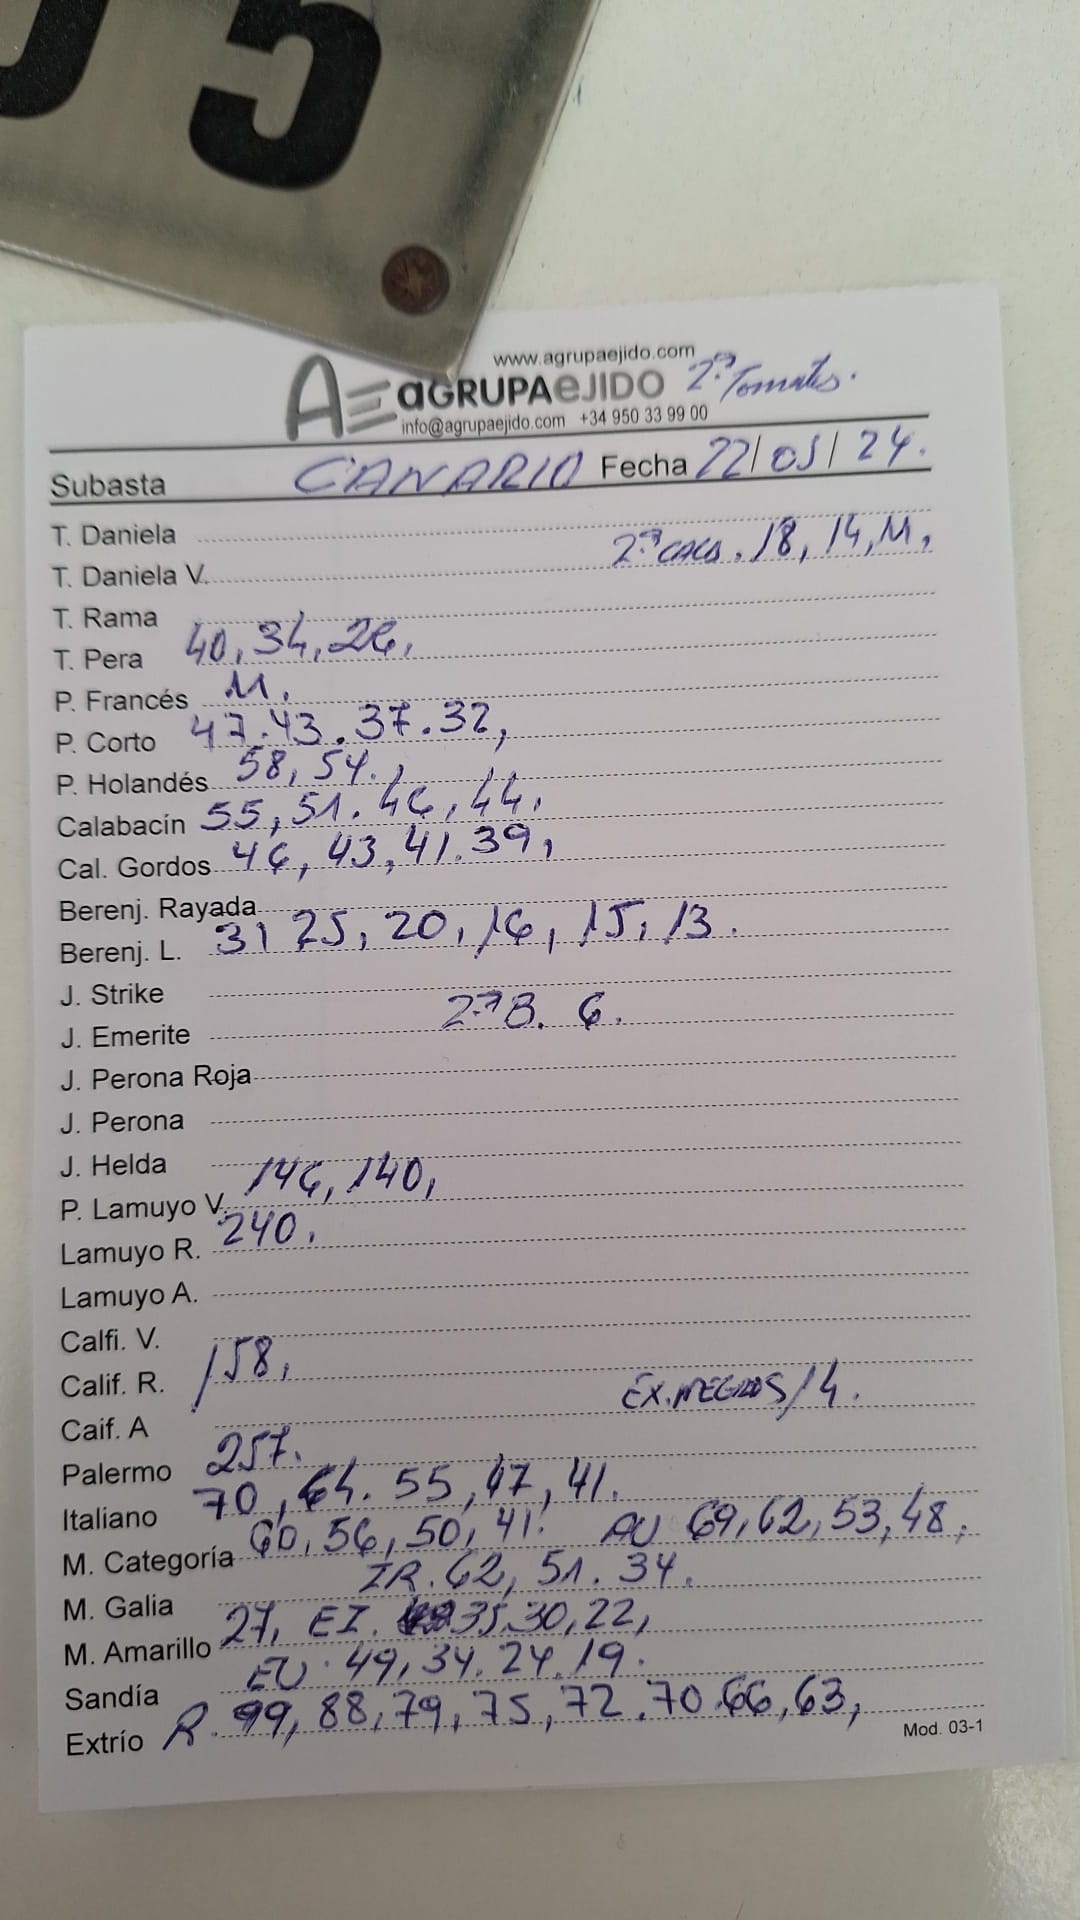 05
www.agrupaejido.com
AE aGRUPAeJIDO 2ª Tomates.
info@agrupaejido.com +34 950 33 99 00
Subasta CANARIO Fecha 22/05/24.
T. Daniela
T. Daniela V. 2ª CALA. 18, 14, M,
T. Rama
T. Pera 40, 34, 26,
P. Francés M.
P. Corto 47. 43. 37. 32,
P. Holandés 58, 54.,
Calabacín 55, 51. 46, 44,
Cal. Gordos 46, 43, 41. 39,
Berenj. Rayada
Berenj. L. 31 25, 20, 16, 15, 13.
J. Strike
J. Emerite 2ªB. 6.
J. Perona Roja
J. Perona
J. Helda
P. Lamuyo V. 146, 140,
Lamuyo R. 240.
Lamuyo A.
Calfi. V.
Calif. R. 158,
Caif. A EX. NEGROS 14.
Palermo 257.
Italiano 70, 64. 55, 47, 41.
M. Categoría 60, 56, 50, 41. AU 69, 62, 53, 48,
M. Galia IR. 62, 51. 34.
M. Amarillo 27, EI. 35. 30, 22,
Sandía EU. 49, 34. 24. 19.
Extrío R. 99, 88, 79, 75, 72. 70. 66, 63,
Mod. 03-1